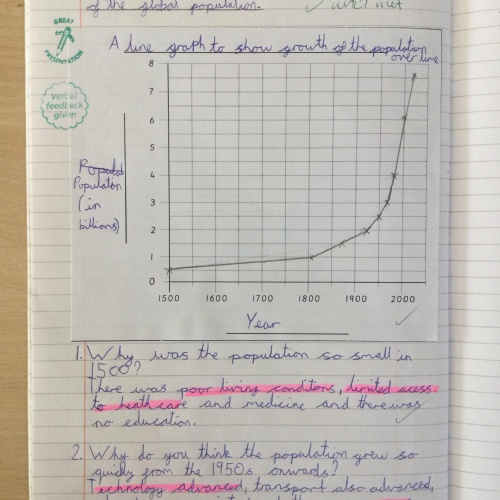 of the global population.
until met
GREAT
PRESENTATION
Verbal
feedback
given
A line graph to show growth of the population
over time
8
7
6
5
4
3
2
1
0
Populat
Population
(in
billions)
1500 1600 1700 1800 1900 2000
Year
1. Why was the population so small in
1500?
There was poor living conditions, limited acess
to heath care and medicine and there was
no education.
2. Why do you think the population grew so
quickly from the 1950s onwards?
Technology advanced, transport also advanced,